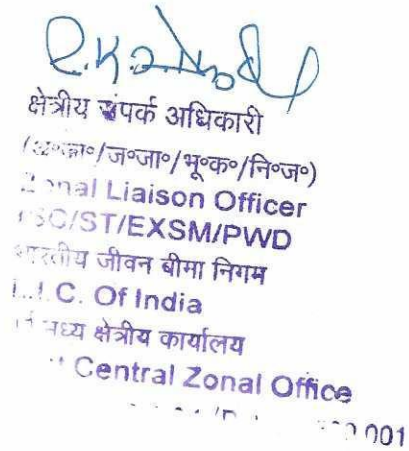 क्षेत्रीय संपर्क अधिकारी
(अ०जा०/ज०जा०/भू०क०/नि०ज०)
Zonal Liaison Officer
SC/ST/EXSM/PWD
भारतीय जीवन बीमा निगम
L.I.C. Of India
मध्य क्षेत्रीय कार्यालय
Central Zonal Office
001